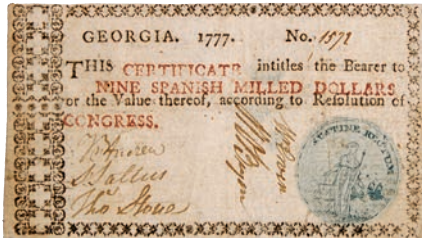 GEORGIA. 1777. No. 1571
THIS CERTIFICATE intitles the Bearer to
NINE SPANISH MILLED DOLLARS
or the Value thereof, according to Resolution of
CONGRESS.
Thos Stone
SUSTINE RECTUM